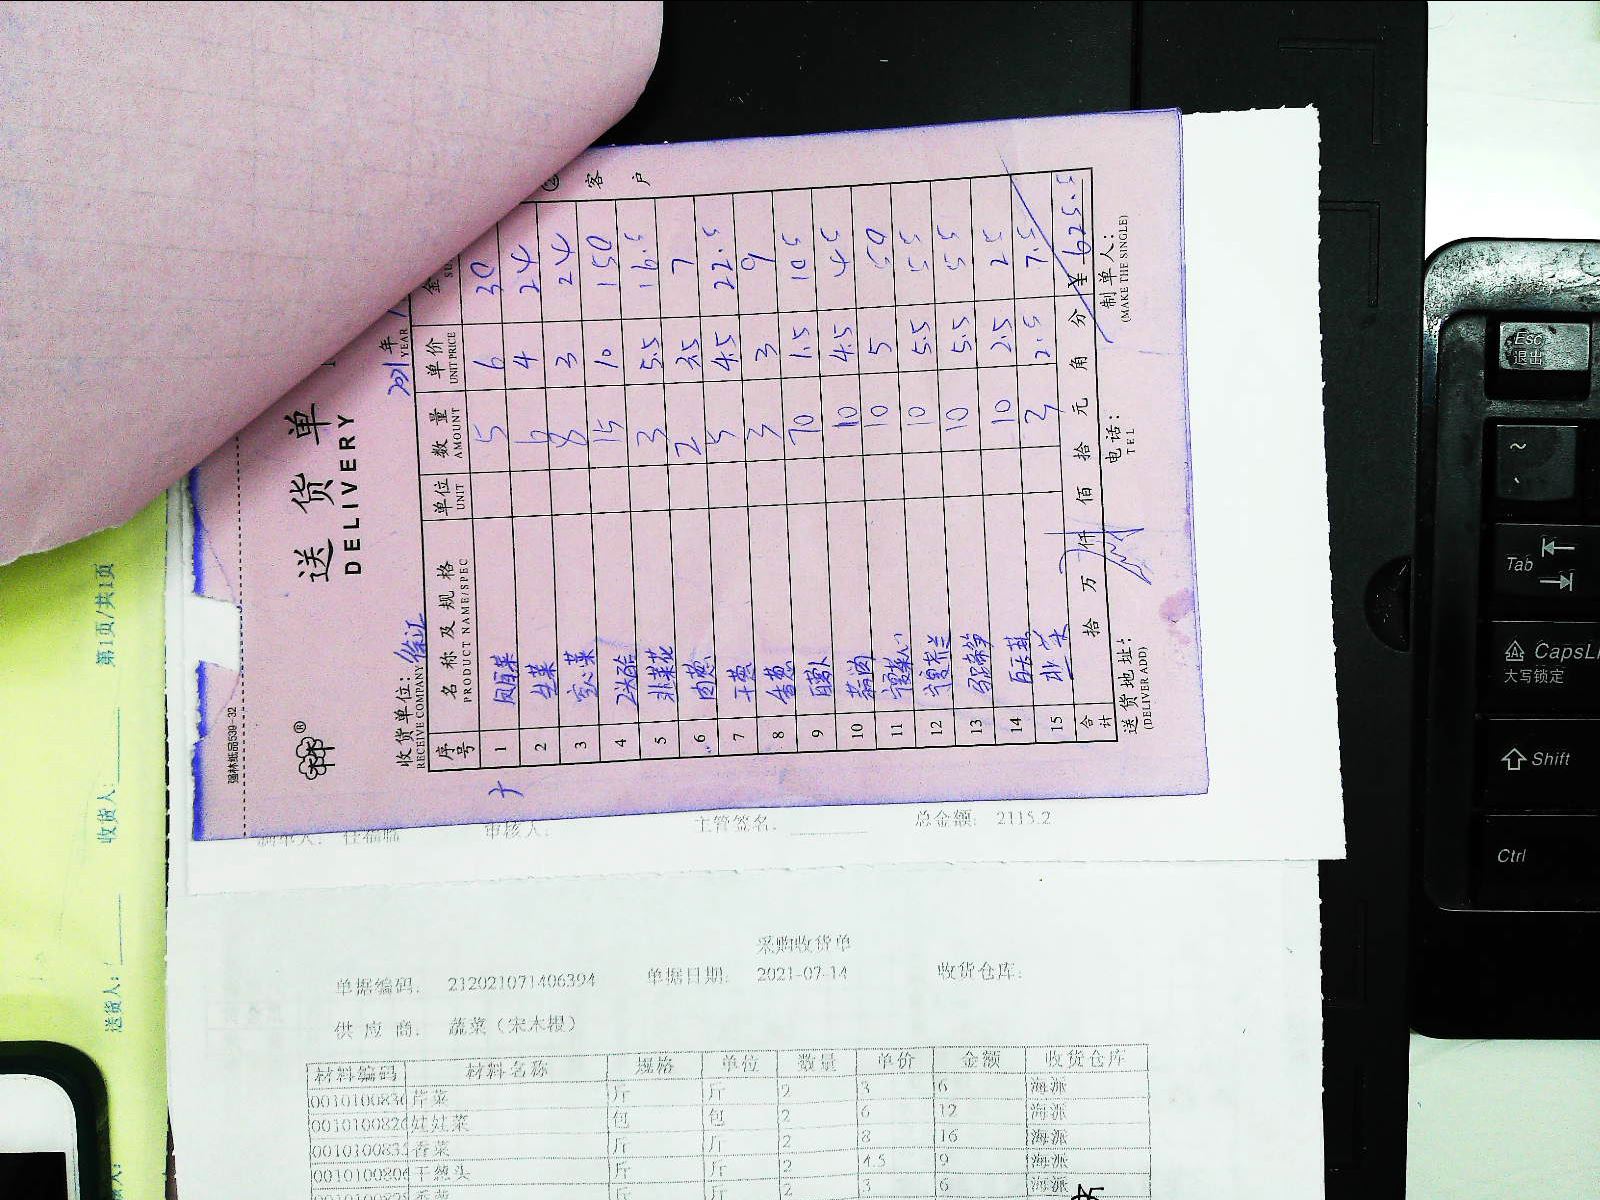 强林纸品539-32
送货单
DELIVERY
② 客户
2021年
YEAR
收货单位:
RECEIVE COMPANY
序号 名称及规格 单位 数量 单价 金
PRODUCT NAME/SPEC UNIT AMOUNT UNIT PRICE
1 5 6 30
2 生菜 6 4 24
3 空心菜 8 3 24
4 15 10 150
5 韭菜花 3 5.5 16.5
6 肉葱 2 3.5 7
7 干葱 5 4.5 22.5
8 香葱 3 3 9
9 白萝卜 70 1.5 105
10 10 4.5 45
11 10 5 50
12 10 5.5 55
13 10 5.5 55
14 10 2.5 25
15 3 2.5 7.5
合计 拾 万 仟 佰 拾 元 角 分 ¥625.5
送货地址: 电话: 制单人:
(DELIVER ADD) TEL (MAKE THE SINGLE)
审核人: 主管签名: 总金额: 2115.2
采购收货单
单据编码: 212021071406394 单据日期: 2021-07-14 收货仓库:
供应商: 蔬菜(宋木根)
材料编码 材料名称 规格 单位 数量 单价 金额 收货仓库
芹菜 斤 斤 2 3 6 海派
娃娃菜 包 包 2 6 12 海派
香菜 斤 斤 2 8 16 海派
干葱头 斤 斤 2 4.5 9 海派
斤 斤 2 3 6 海派
第1页/共1页
收货人:
送货人:
Esc
退出
~
Tab
CapsL
大写锁定
Shift
Ctrl